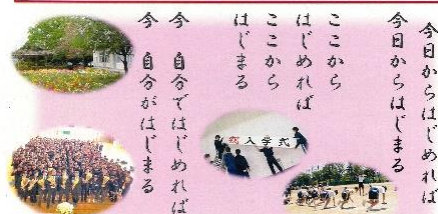 今日からはじめれば
今日からはじまる
ここから
はじめれば
ここから
はじまる
今 自分ではじめれば
今 自分がはじまる
入学式